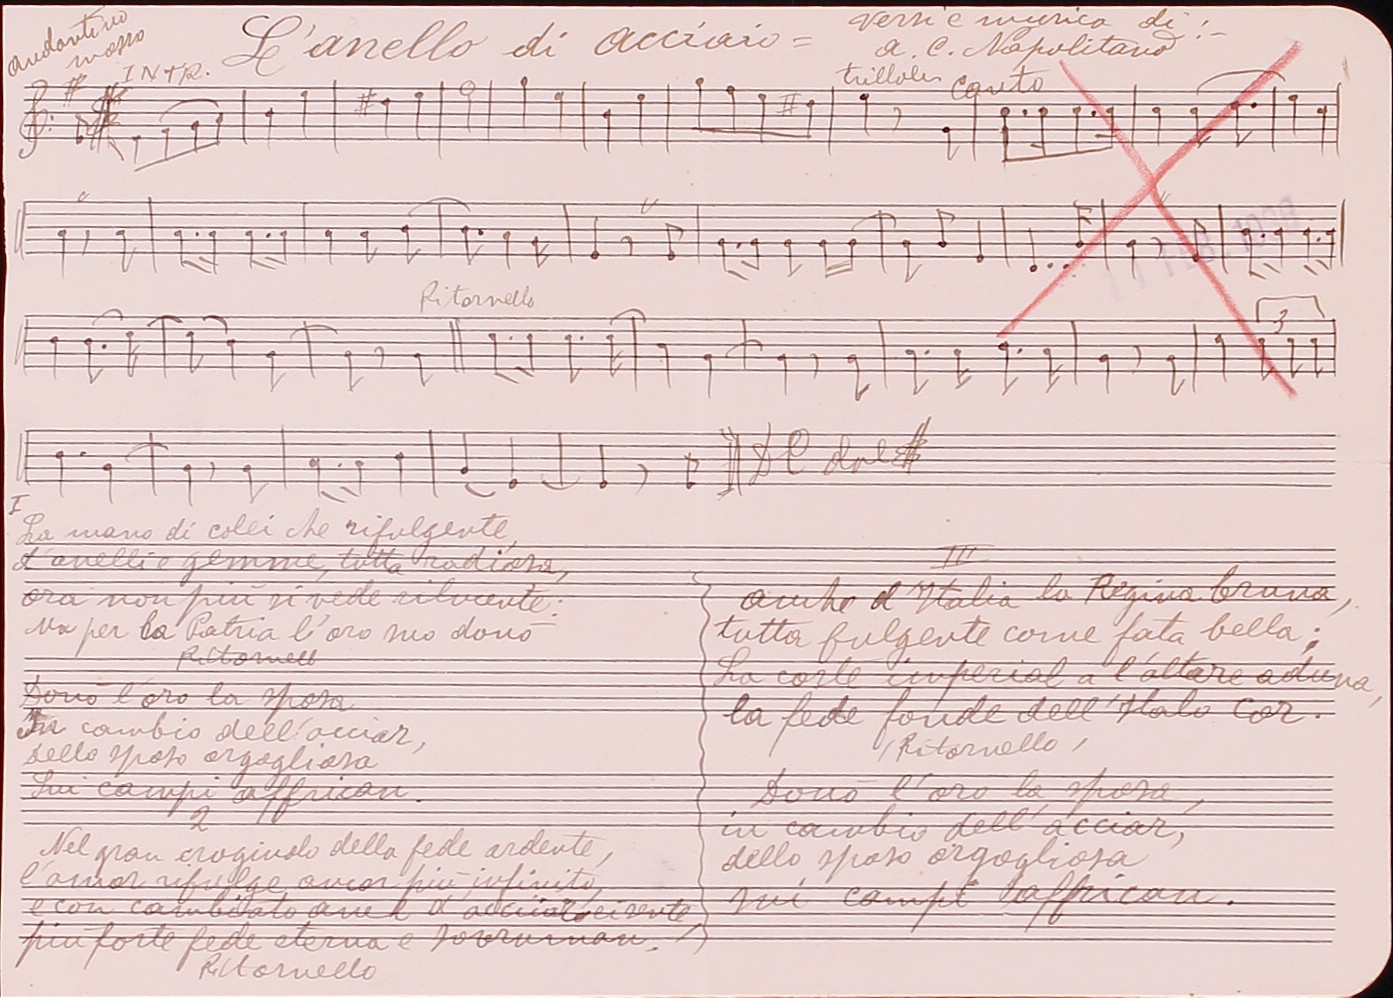 andantino
mosso
L'anello di acciaio =
Versi e musica di :-
a. C. Napolitano
INTR.
trillolen
Canto
Ritornello
3
DC dal
I
La mano di colei che rifulgente,
d'anelli e gemme, tutta radiosa,
ora non più si vede rilucente:
Ma per la Patria l'oro suo donò
Ritornell
Donò l'oro la sposa
In cambio dell'acciar,
Dello sposo orgogliosa
Sui campi affrican.
2
Nel gran crogiuolo della fede ardente,
l'amor rifulge ancor più infinito,
e con cambiato anel d'acciar
più forte fede eterna e sovruman.
Ritornello
III
anche d'Italia la Regina bruna,
tutta fulgente come fata bella;
La corte imperial a l'altare aduna,
la fede fonde dell'Italo Cor.
(Ritornello)
Donò l'oro la sposa,
in cambio dell'acciar,
dello sposo orgogliosa
sui campi affrican.